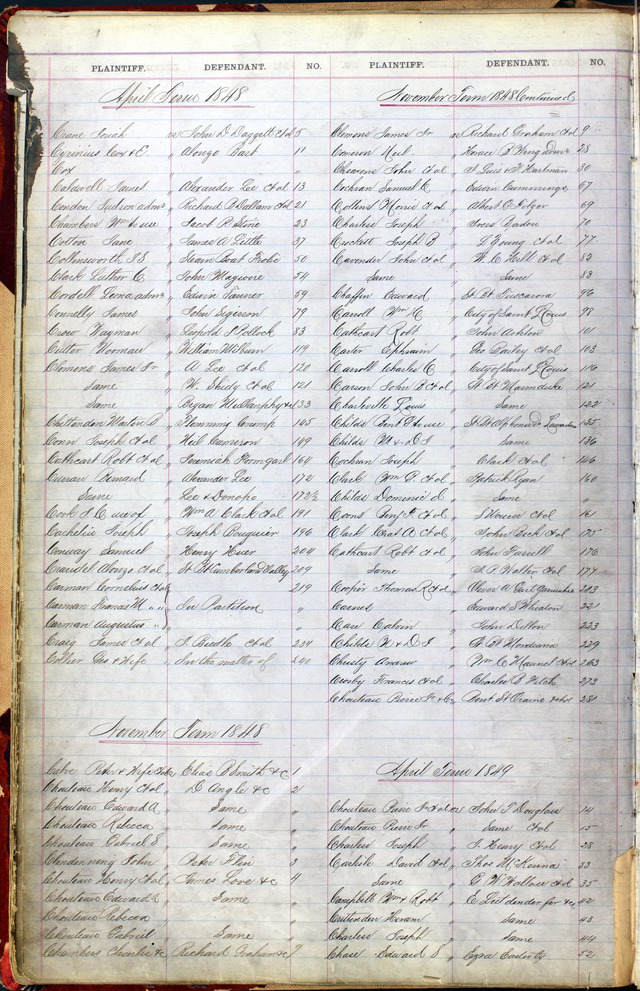 PLAINTIFF. DEFENDANT. NO.
April Term 1848
Crane Josiah vs John D Daggett et al 5
Cyrinius Cox & E " Alonzo Bast 11
Cox " "
Caldwell James " Alexander Lee et al 13
Condon " Richard B Dallam et al 21
Chambers Wm to use " Jacob R Stine 23
Colton Jane " James A Little 37
Collinsworth J S " Steam Boat Frolic 50
Clark Luther C. " John Magwire 54
Cordell admr " Edwin Tanner 59
Connelly James " John Sigerson 79
Crow Wayman " Leopold J Pollock 83
Cutter Norman " William Milburn 119
Clemens James Jr " A Lee et al 120
Same " W. Shidy et al 121
Same " Bryan Mullanphy &c 133
Chittenden Marten B " Flemming Crump 145
Conn Joseph et al " Neil Cameron 149
Cathcart Robt et al " Jeremiah 164
Curran Bernard " Alexander Lee 172
Same " Lee & Donoho 172½
Cook J C use of " Wm A Clark et al 191
Cachelin Joseph " Joseph Bouguier 196
Conway Samuel " Henry 204
Crandel Alonzo et al " St Bt Cumberland Valley 209
Carman Cornelius et al 219
Carman Francis M " " " See Partition "
Carman Augustus " " "
Craig James et al " S Bredle et al 234
Collier Geo & Wife " In the matter of 240
November Term 1848
Peter & Wife et al vs Elias B Smith & c 1
Chouteau Henry et al " D Angle & c 2
Chouteau Edward A " Same "
Chouteau Rebecca " Same "
Chouteau Gabriel S " Same "
Clendenning John " Peter 3
Chouteau Henry et al " James Love & c 4
Chouteau Edward A " Same "
Chouteau Rebecca "
Chouteau Gabriel " Same "
Chambers Charles &c " Richard Graham &c 7
PLAINTIFF. DEFENDANT. NO.
November Term 1848 Continued
Clemens James Jr vs Richard Graham et al 9
Cameron Neil " Horace B Wing admr 25
Cheavens John et al " F Luis & F Hartman 30
Cochran Samuel C " Edwin Cummings 67
Collins Monroe et al " Albert G Edgar 69
Charless Joseph " Isres Badon 70
Crockett Joseph B " J Young et al 77
Cavender John et al " W. C Hall et al 82
Same " Same 83
Chaffin Edward " St Bt Tuscarora 96
Carroll Wm C " City of Saint Louis 98
Cathcart Robt " John Ashton 101
Carter Ephraim " Geo Bailey et al 103
Carroll Charles C " City of Saint Louis 116
Carson John B et al " St Bt Marmduke 121
Charleville Louis " Same 122
Childs to use " St Bt 135
Childs N & D I " Same 136
Cochran Joseph " Clark et al 146
Clark Wm G. et al " Patrick Ryan 160
Childs Domenic D " Same "
Corns Jerry F et al " J Vouise et al 161
Clark Chas A et al " John Beck et al 175
Cathcart Robt et al " John Farrell 176
Same " S. P. Wolter et al 177
Cooper Thomas R et al " Oliver A Garrische 203
Carnes " Edward S Wheaton 221
Case Calvin " John Dillon 223
Childs N & D I " St Bt Montauna 229
Christy Andrew " Wm C Maunel et al 263
Crosby Francis et al " Charles B Fitch 273
Chouteau Pierre Jr & Co " 281
April Term 1849
Chouteau Pierre Jr et al vs John T Douglass 14
Chouteau Pierre Jr " Same et al 15
Charless Joseph " J. Henry et al 28
Carlisle David et al " Thos McKenna 33
Same " G W Wallace et al 35
Campbell Wm & Robt " C Leitdendorfer &c 42
Crittenden Hiram " Same 43
Charless Joseph " Same 44
Chase Edward S " Ezra 52